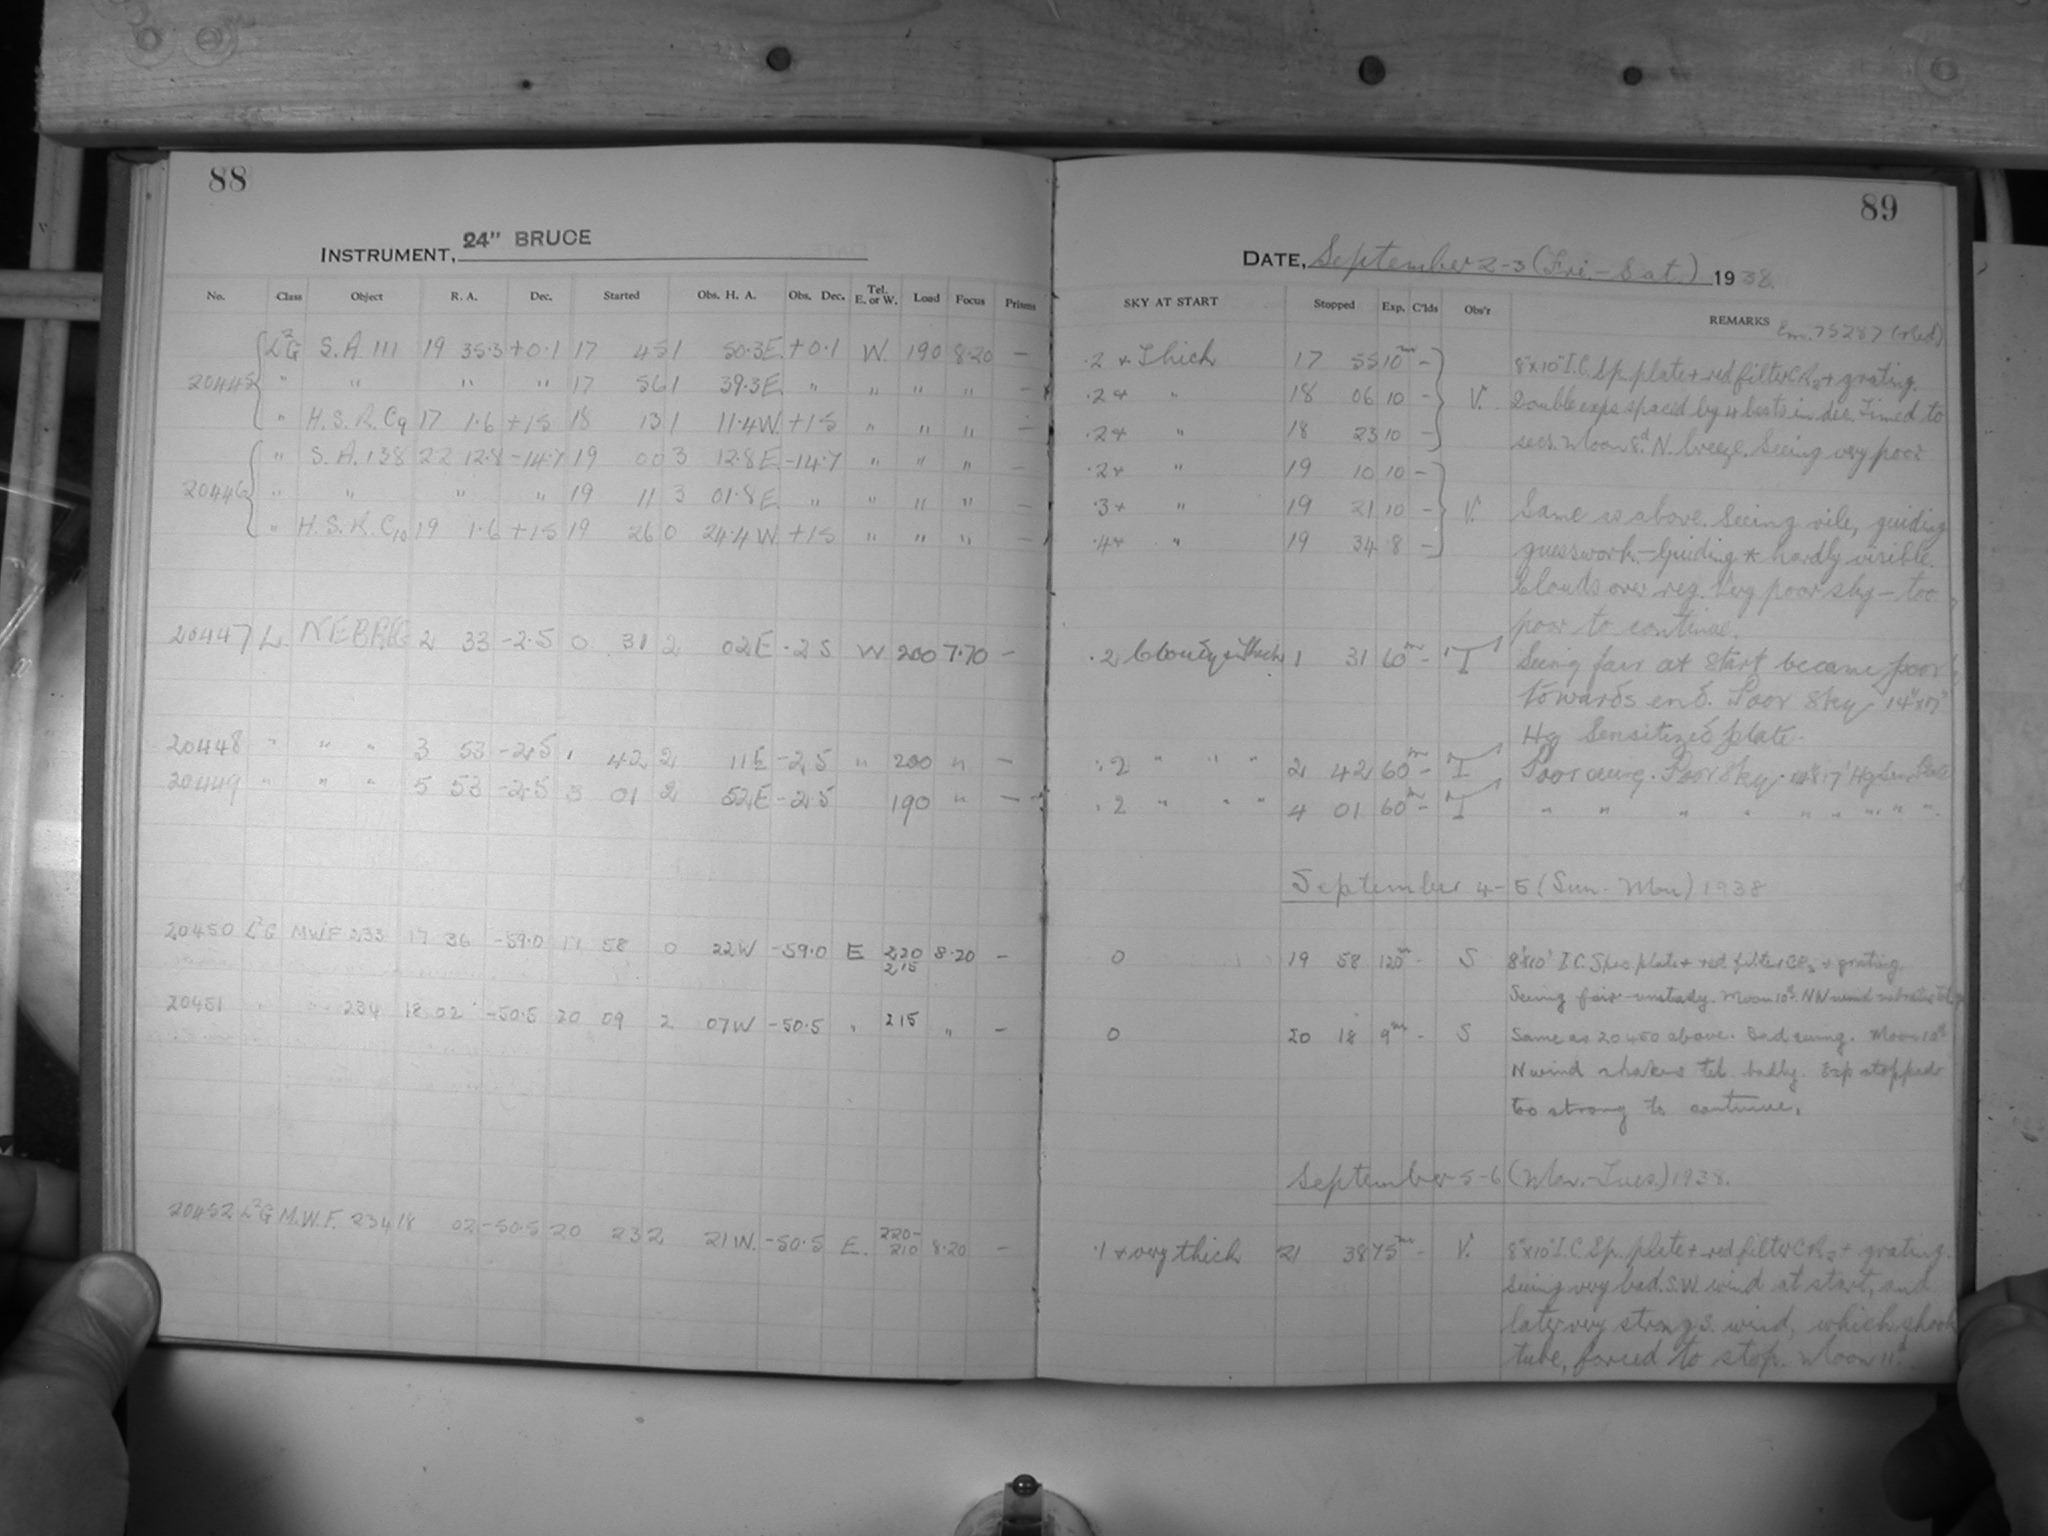 88
INSTRUMENT, 24" BRUCE
No. Class Object R. A. Dec. Started Obs. H. A. Obs. Dec. Tel. E. or W. Load Focus Prisms
L²G S.A. 111 19 35.3 +0.1 17 45 1 50.3E +0.1 W. 190 8.20 —
20445 " " " " 17 56 1 39.3E " " " " —
" H.S.R. C9 17 1.6 +15 18 13 1 11.4W. +15 " " " —
" S.A. 138 22 12.8 -14.7 19 00 3 12.8E -14.7 " " " —
20446 " " " " 19 11 3 01.8E " " " " —
" H.S.R. C10 19 1.6 +15 19 26 0 24.4W +15 " " " —
20447 L 2 33 -2.5 0 31 2 02E -2.5 W 200 7.70 —
20448 " " " 3 53 -2.5 1 42 2 11E -2.5 " 200 " —
20449 " " " 5 53 -2.5 3 01 2 52E -2.5 190 " —
20450 L²G MWF 233 17 36 -59.0 17 58 0 22W -59.0 E 220 8.20 —
215
20451 " " 234 18 02 -50.5 20 09 2 07W -50.5 " 215 " —
20452 L²G M.W.F. 234 18 02 -50.5 20 23 2 21W. -50.5 E. 220- 210 8.20 —
89
DATE, September 2-3 (Fri.-Sat.) 1938.
SKY AT START Stopped Exp. C'lds Obs'r REMARKS
Em. 75287 (red)
.2 + Thick 17 55 10m - 8"x10" I.C. Sp. plate + red filter CR2 + grating.
.2+ " 18 06 10 - V. Double exps spaced by 4 bests in dec. Timed to
.2+ " 18 23 10 - secs. Moon 8d. N. breeze. Seeing very poor
.2+ " 19 10 10 -
.3+ " 19 21 10 - V. Same as above. Seeing vile, guiding
.4+ " 19 34 8 - guesswork - Guiding * hardly visible.
Clouds over reg. Very poor sky - too
poor to continue.
.2 Cloudy & Thick 1 31 60m - T Seeing fair at start became poor
towards end. Poor Sky 14"x17"
Hg Sensitized plate.
.2 " " " 2 42 60m - T Poor Sky. 14"x17" Hg Sen. Plate
.2 " " " 4 01 60m - T " " " " " " " " "
September 4-5 (Sun.-Mon) 1938
0 19 58 120m - S 8"x10" I.C. Spec. plate + red filter CR2 + grating
Seeing fair - unsteady. Moon 10d. NW wind
0 20 18 9m - S Same as 20450 above. Bad seeing. Moon 10d
N wind shakes tel. badly. Exp stopped
too strong to continue.
September 5-6 (Mon.-Tues.) 1938.
.1 + very thick 21 38 75m - V. 8"x10" I.C. Sp. plate + red filter CR2 + grating.
Seeing very bad. S.W wind at start, and
later very strong S. wind, which shook
tube, forced to stop. Moon 11d.